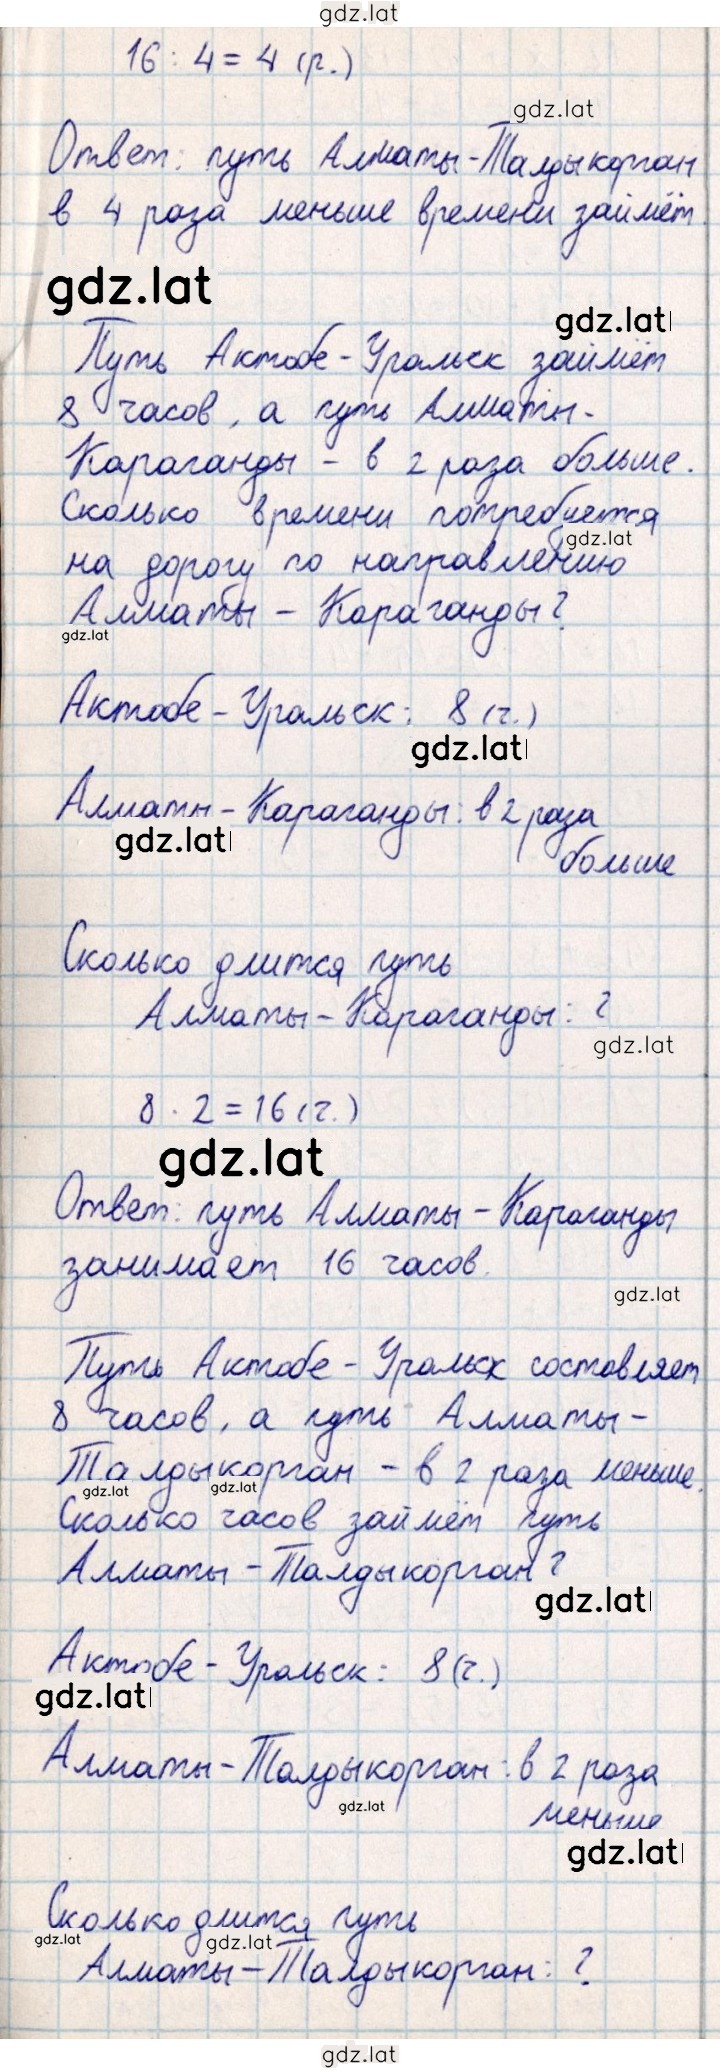 gdz.lat
16 : 4 = 4 (р.)
gdz.lat
Ответ: путь Алматы-Талдыкорган
в 4 раза меньше времени займёт.
gdz.lat
gdz.lat
Путь Актобе-Уральск займёт
8 часов, а путь Алматы-
Караганды - в 2 раза больше.
Сколько времени потребуется
gdz.lat
на дорогу по направлению
Алматы - Караганды?
gdz.lat
Актобе-Уральск: 8 (ч.)
gdz.lat
Алматы-Караганды: в 2 раза
gdz.lat
больше
Сколько длится путь
Алматы-Караганды: ?
gdz.lat
8 · 2 = 16 (ч.)
gdz.lat
Ответ: путь Алматы-Караганды
занимает 16 часов.
gdz.lat
Путь Актобе-Уральск составляет
8 часов, а путь Алматы-
Талдыкорган - в 2 раза меньше.
gdz.lat gdz.lat
Сколько часов займёт путь
Алматы-Талдыкорган?
gdz.lat
Актобе-Уральск: 8 (ч.)
gdz.lat
Алматы-Талдыкорган: в 2 раза
gdz.lat
меньше
gdz.lat
Сколько длится путь
gdz.lat gdz.lat
Алматы-Талдыкорган: ?
gdz.lat